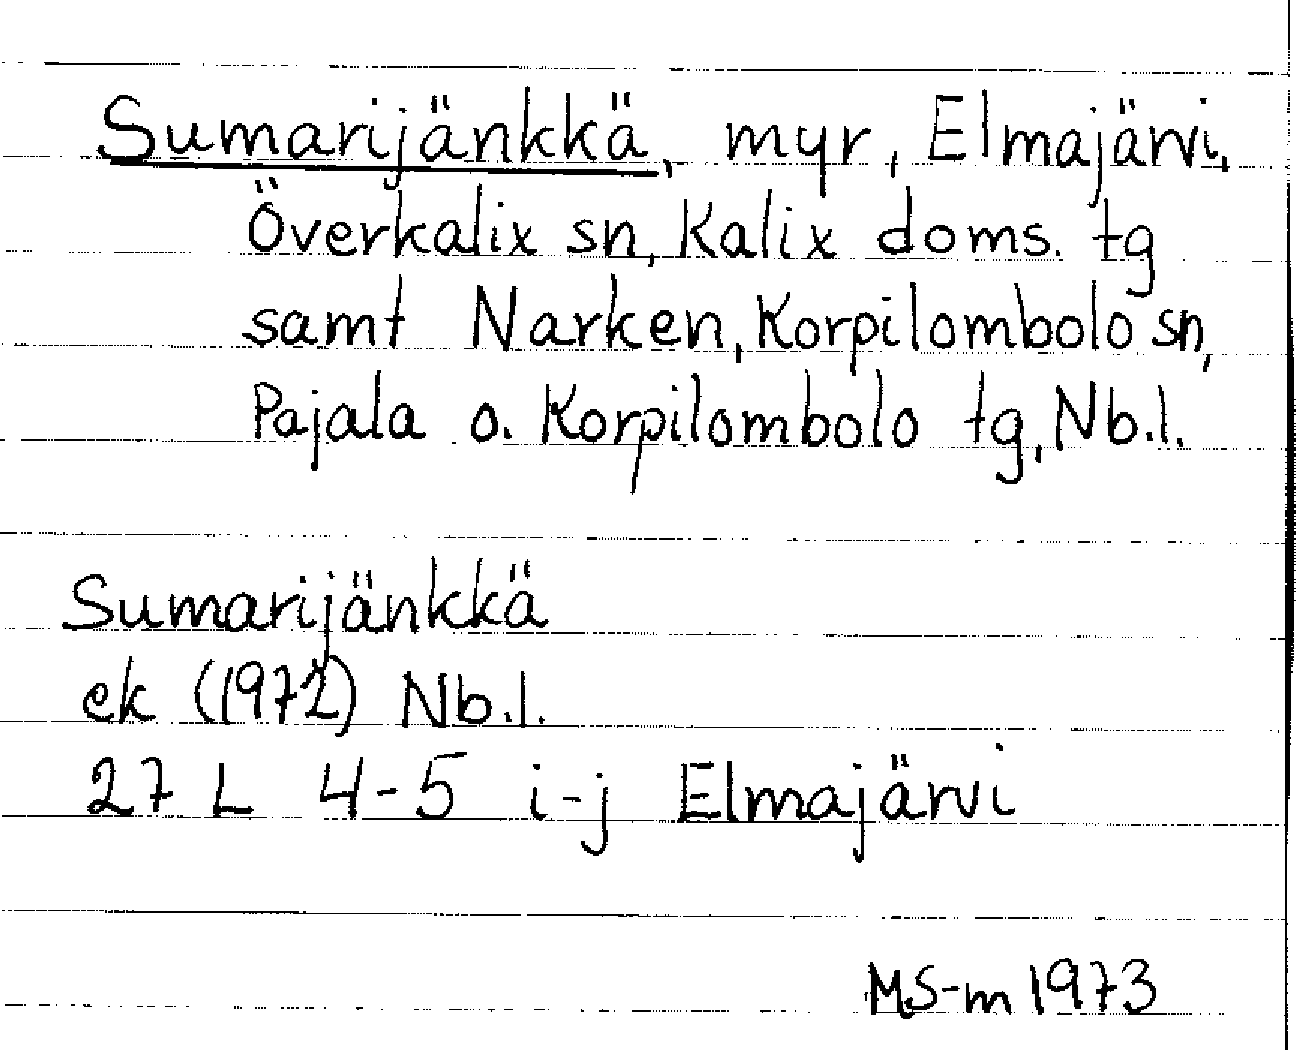 Sumarijänkkä, myr, Elmajärvi,
Överkalix sn, Kalix doms. tg
samt Narken, Korpilombolo sn,
Pajala o. Korpilombolo tg, Nb.l.
Sumarijänkkä
ek (1972) Nb.l.
27 L 4-5 i-j Elmajärvi
MS-m 1973